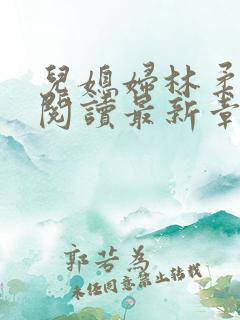 兒媳婦林柔
閱讀最新章
郭若為
未經同意禁止轉載